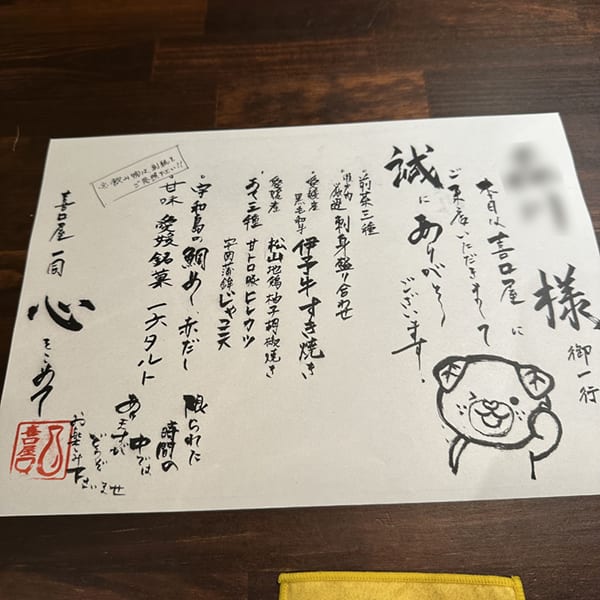 様
御一行
本日は喜口屋に
ご来店いただきまして
誠にありがとう
ございます。
前菜三種
瀬戸内厳選 刺身盛り合わせ
愛媛産黒毛和牛 伊予牛すき焼き
愛媛産 松山地鶏柚子胡椒焼き
あて三種 甘トロ豚ヒレカツ
宇和蒲鉾じゃこ天
宇和島の鯛めし、赤だし
甘味 愛媛銘菓 一六タルト
お飲み物は別紙を
ご覧ください!!
限られた
時間の
中では
ありますが
どうぞ
お楽しみ下さいませ
喜口屋 一同 心をこめて
喜口屋